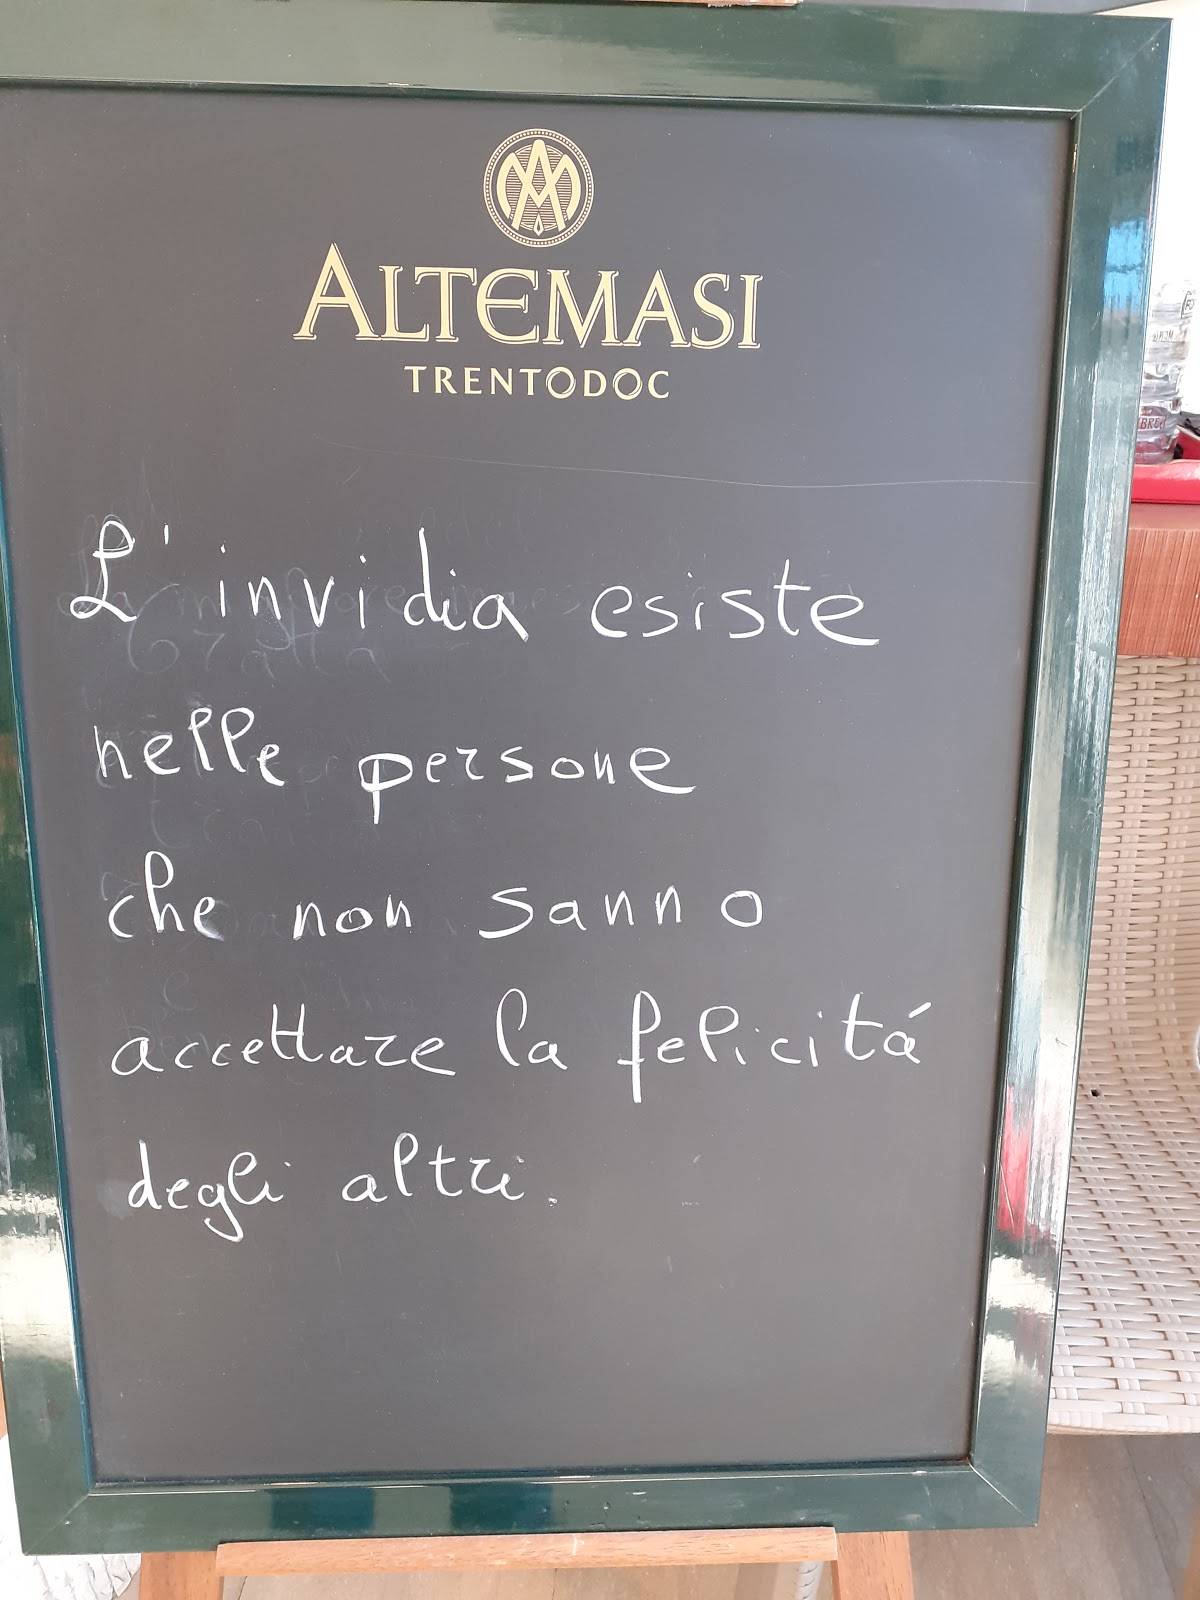 ALTEMASI
TRENTODOC
L'invidia esiste
nelle persone
che non sanno
accettare la felicitá
degli altri.